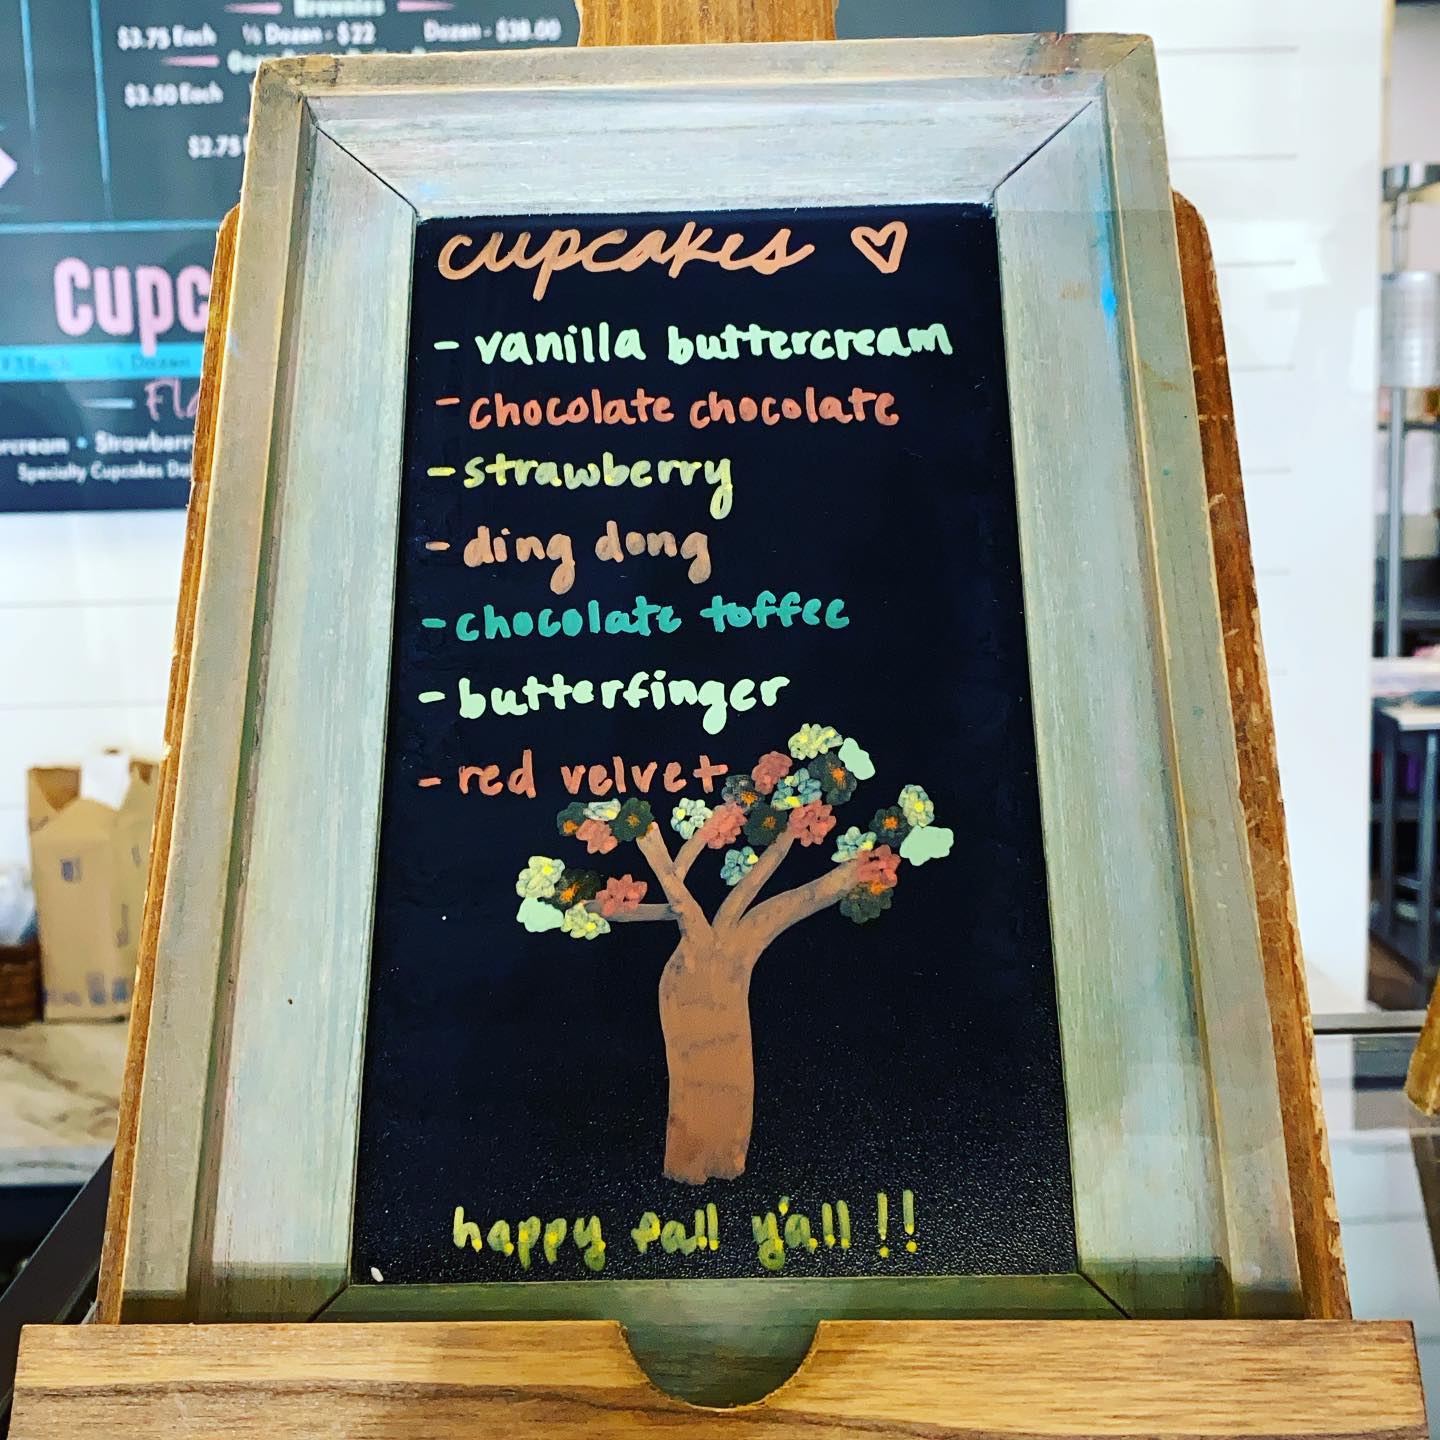 Brownies
$3.75 Each ½ Dozen - $22 Dozen - $38.00
$3.50 Each
$2.75
Cupc
½ Dozen
Fla
rcream • Strawberr
Specialty Cupcakes Da
cupcakes ♡
- vanilla buttercream
- chocolate chocolate
- strawberry
- ding dong
- chocolate toffee
- butterfinger
- red velvet
happy fall y'all !!